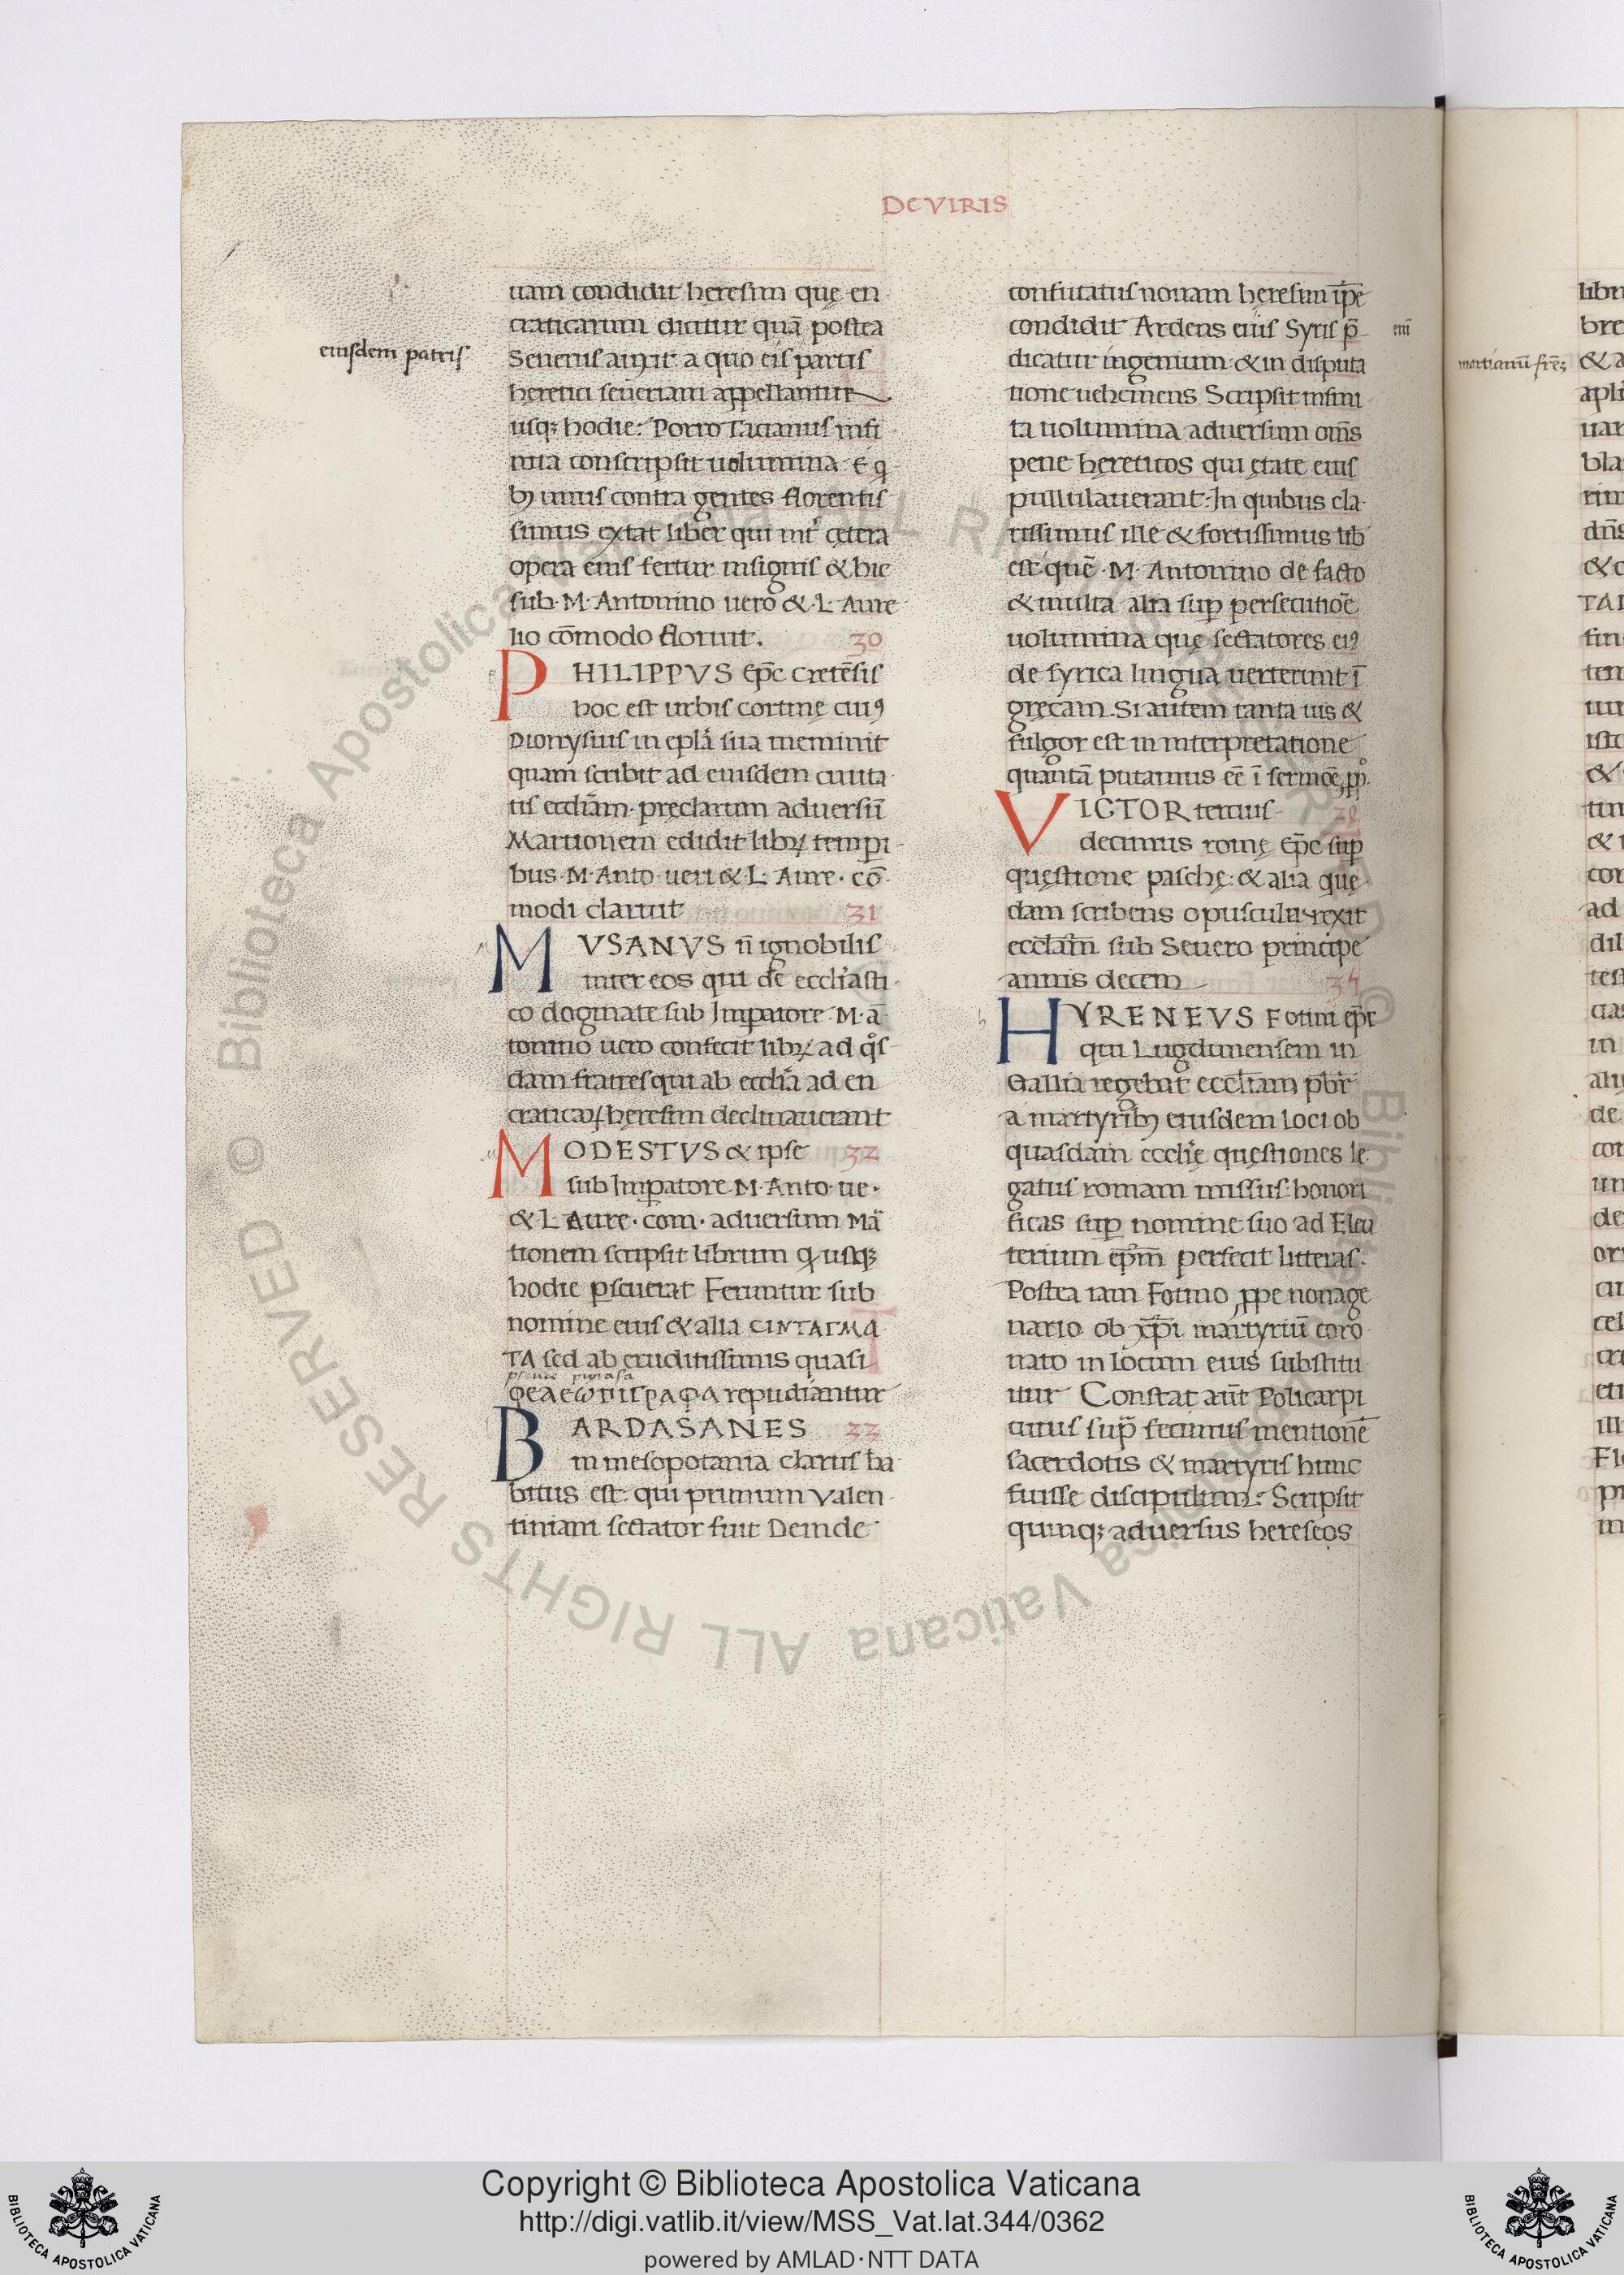 DE VIRIS
uam condidit heresim quę en
craticarum dicitur quā postea
Seuerus auxit a quo eis partis
eiusdem patris
heretici seueriani appellantur
usq; hodie. Porro Tacianus infi
nita conscripsit uolumina e q̄
bꝫ unus contra gentes florentis
simus extat liber qui int̄ cętera
opera eius fertur insignis & hic
sub M. Antonino uero & L. Aure
lio cōmodo floruit. 30
PHILIPPVS ep̄c cretēsis
hoc est urbis cortinę cuiꝰ
Dionysius in eplā sua meminit
quam scribit ad eiusdem ciuita
tis eccl̄iam pręclarum aduersū
Martionem edidit libꝝ temꝑi
bus M. Anto ueri & L. Aure. cō
modi claruit 31
MVSANVS n̄ ignobilis
inter eos qui de eccl̄iasti
co dogmate sub Imꝑatore M. ā
tonino uero confecit libꝝ ad qͦs
dam fratres qui ab eccl̄ia ad en
craticaꝝ heresim declinauerant
MODESTVS & ipse 32
sub Imꝑatore M. Anto ue.
& L Aure. com. aduersum Ma
tionem scripsit librum q usqꝫ
hodie ꝑseuerat Feruntur sub
nomine eius & alia CINTAΓMA
TA sed ab eruditissimis quasi
ΦΕΛΕΩΠΙΓΡΑΦΑ repudiantur
BARDASANES 33
in mesopotania clarus ha
bitus est. qui primum Valen
tiniani sectator fuit Deinde
confutatus nouam heresim ip̄e
condidit Ardens eius Syris p̄ enī
dicatur ingenium & in disputa
tione uehemens Scripsit infini
ta uolumina aduersum om̄s
pene hereticos qui ętate eius
pullulauerant. In quibus cla
rissimus ille & fortissimus lib
est quē M. Antonino de facto
& multa alia suꝑ persecutiōe
uolumina quę sectatores eiꝰ
de syrica lingua uerterunt ī
gręcam. Si autem tanta uis &
fulgor est in interpretatione
quantā putamus eē ī sermōe ꝓpͦ.
VICTOR tercius
decimus romę Ep̄c suꝑ
quęstione paschę & alia quę
dam scribens opuscula rexit
eccl̄am sub Seuero principe
annis decem 34
HYRENEVS Fotini ep̄i
qui Lugdunensem in
Gallia regebat eccl̄iam pbr̄
a martyribꝫ eiusdem loci ob
quasdam eccl̄ię quęstiones le
gatus romam missus honori
ficas suꝑ nomine suo ad Eleu
terium ep̄m perfecit litteras.
Postea iam Fotino ꝓpe nonage
nario ob xp̄i martyriū coro
nato in locum eius substitu
itur Constat aūt Policarpi
cuius sup̄ fecimus mentionē
sacerdotis & martyris hunc
fuisse discipulum. Scripsit
quinqꝫ aduersus hereseos
martianū frēꝫ
Copyright © Biblioteca Apostolica Vaticana
http://digi.vatlib.it/view/MSS_Vat.lat.344/0362
powered by AMLAD·NTT DATA
BIBLIOTECA APOSTOLICA VATICANA
BIBLIOTECA APOSTOLICA VATICANA